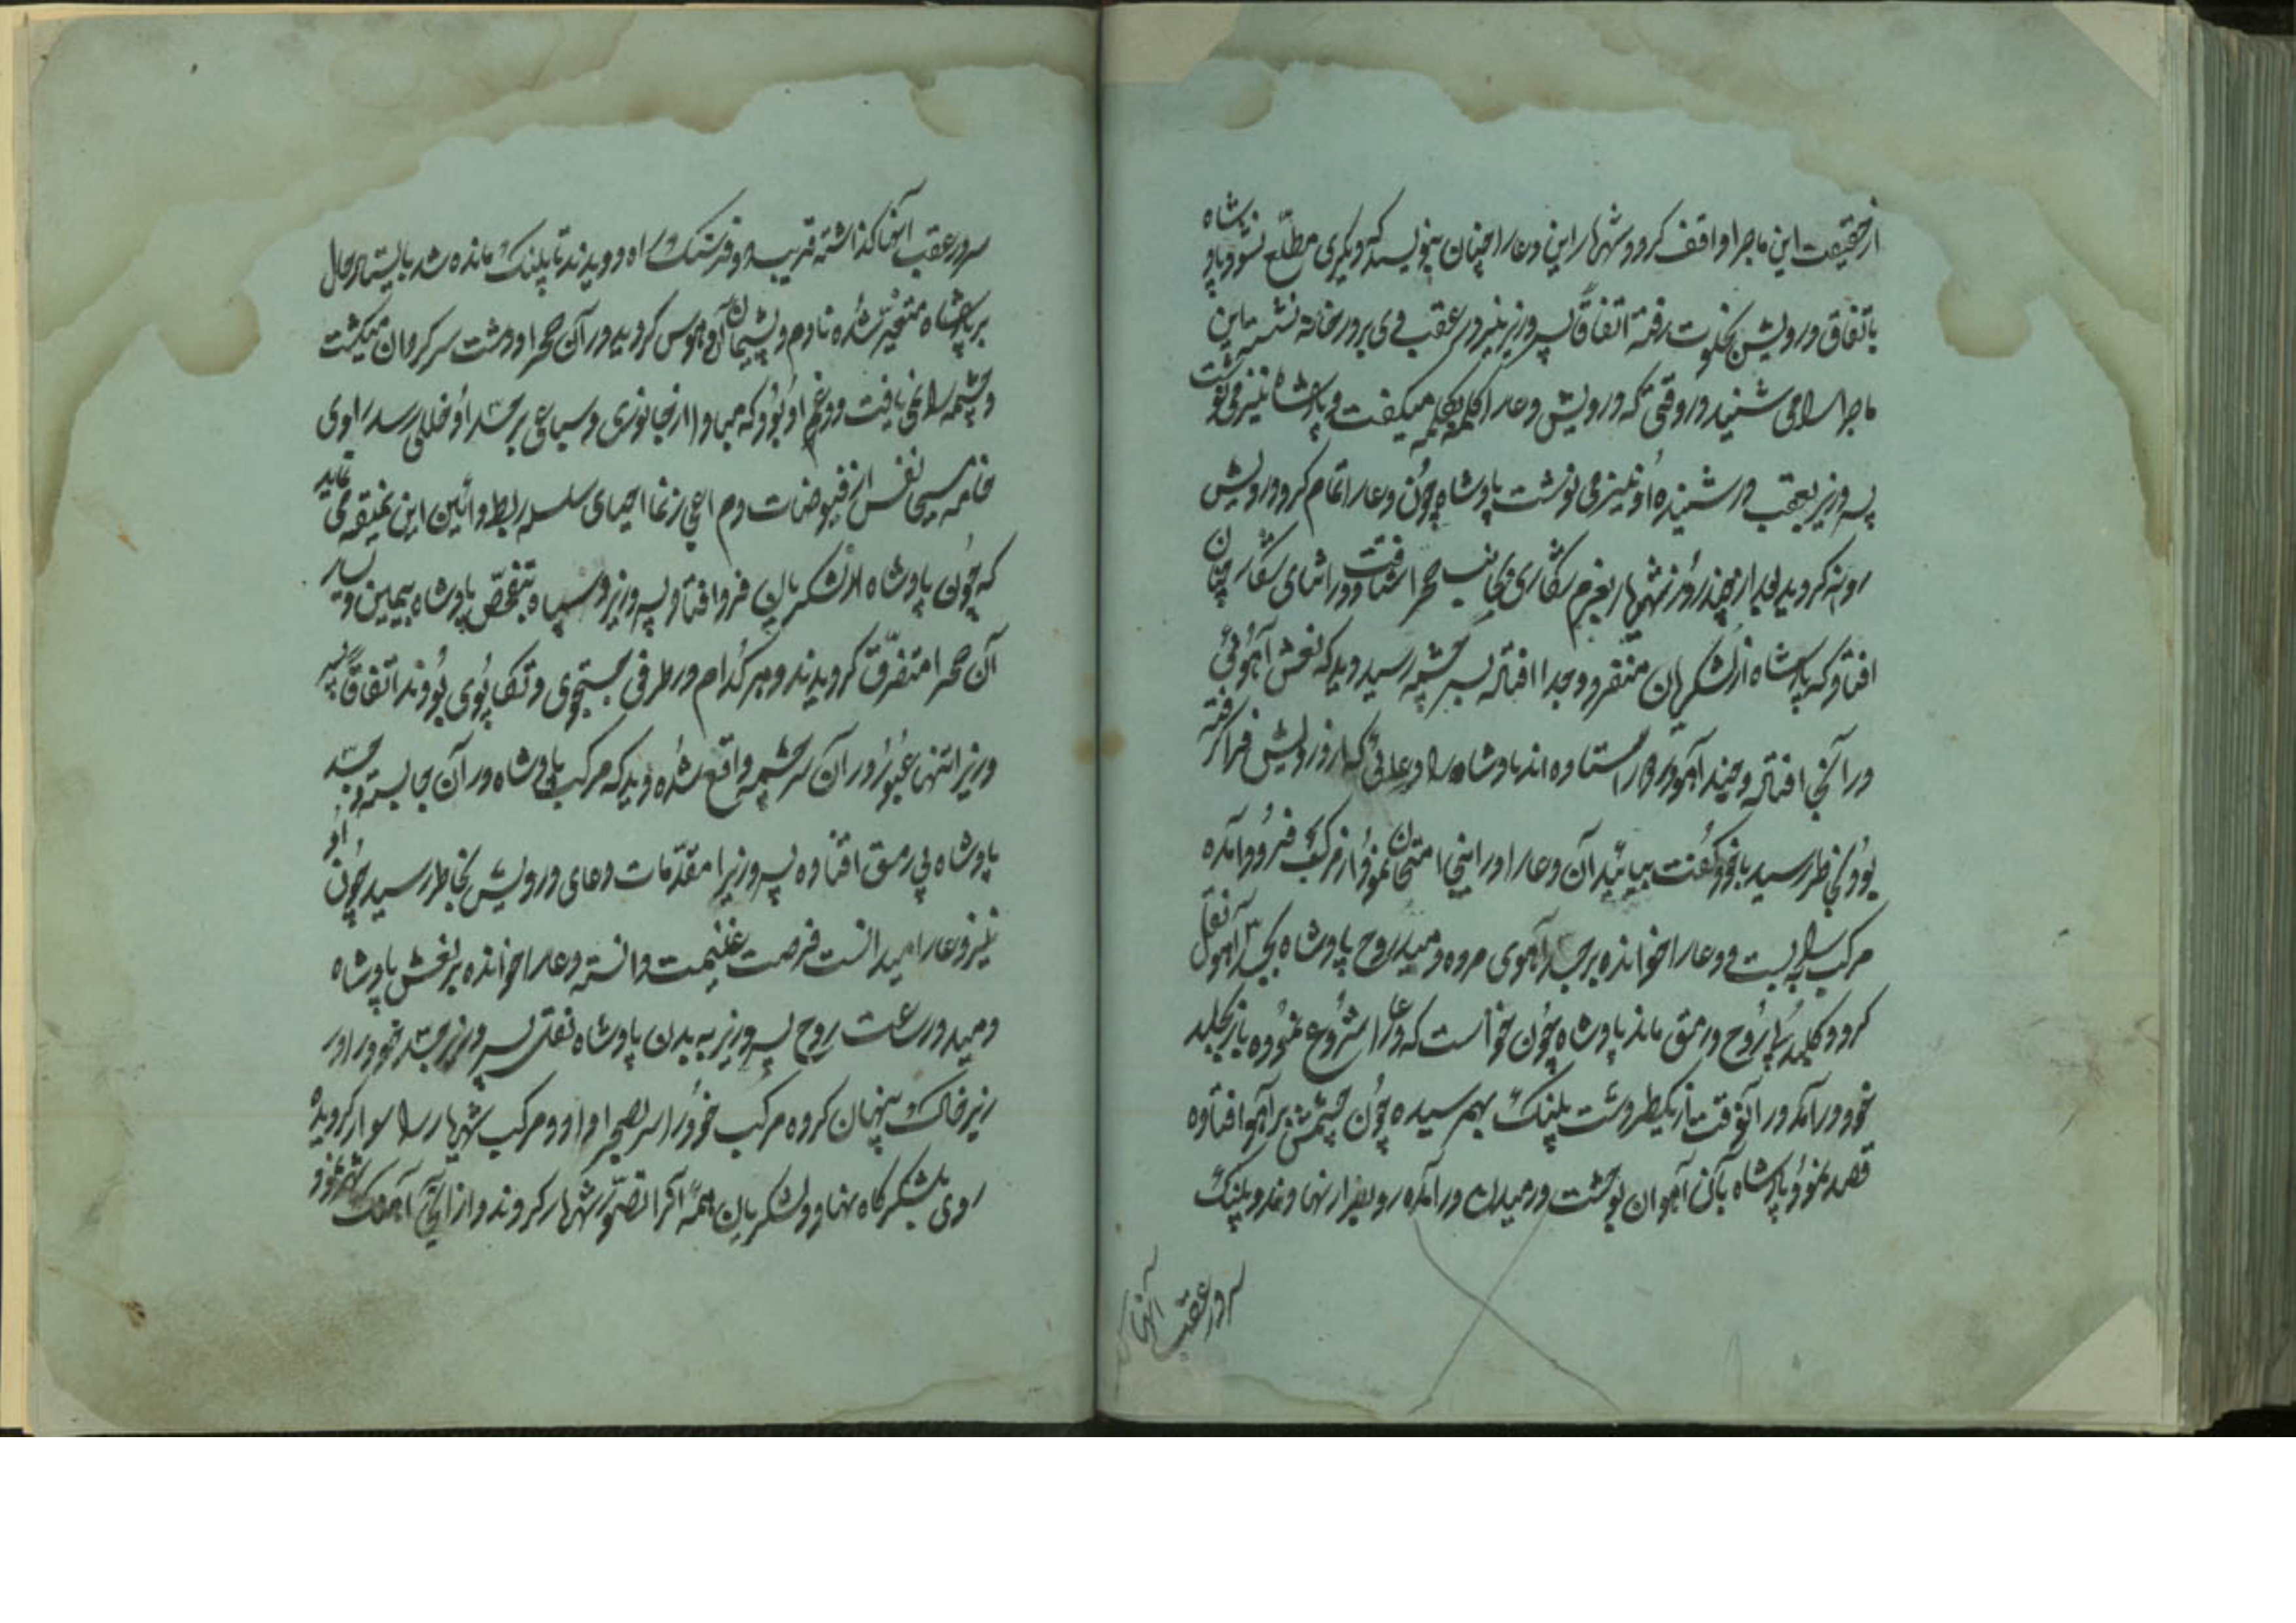 ازحقیقت این ماجرا واقف کرد و شهریار این دعا را چنان بنویسد که دیگری مطلّع نشود پادشاه
باتفاق درویش بخلوت رفته اتفاقاً پسر وزیر نیز در عقب وی بر در خانه نشسته این
ماجرا را می شنید در وقتی که درویش دعا را کلمه بکلمه میگفت و پادشاه نیز می نوشت
پسر وزیر بعقب در شنیده او نیز می نوشت پادشاه چون دعا را تمام کرد درویش
روانه گردید بعد از چند روز شهریار بعزم شکار بجانب صحرا شتافت و در اثنای شکار چنان
افتاد که پادشاه از لشکریان متفرد و جدا افتاده بسر چشمه رسید دید که نعش آهوئی
در آنجا افتاده و چند آهو در استاده اند پادشاه را دعائی که از درویش فرا گرفته
بود بخاطر رسید باخود گفت بیائید آن دعا را در اینجا امتحان نمود از مرکب فرود آمده
مرکب را ببست و دعا را خوانده بر جسد آهوی مرده دمید روح پادشاه بجسد آهو نقل
کرد و کلبد را روح و رمق ماند پادشاه چون خواست که دعا را شروع نموده باز بکلبد
خود در آمد در آنوقت از یکطرف دشت پلنگ بهم رسیده چون چشمش بر آهو افتاده
قصد نمود پادشاه با آن آهوان بوحشت و رمیدن در آمده رو بفرار نهادند و پلنگ
سر در عقب آنها
سر در عقب آنها گذاشته قریب دو فرسنگ راه دویدند تا پلنگ مانده شد بایستاد حال
بر پادشاه متغیّر شده نادم و پشیمان آن هوس گردید در آن صحرا و دشت سرگردان میگشت
و چشمه را نمی یافت و در غم او بود که مبادا از جانوری و سباعی بر جسد او خللی رسد راوی
خامه مسیحی نفس از فیوضات دم اعجاز نما احیای سلسله ربط و آئین این عتیقه می نماید
که چون پادشاه از لشکریان فرو افتاد پسر وزیر و سپاه بتفحّص پادشاه بیمین و یسار
آن صحرا متفرّق گردیدند و هر کدام در طرفی بجستجوی و تکاپوی بودند اتفاقاً پسر
وزیر را تنها عبور در آن سر چشمه واقع شده دید که مرکب پادشاه در آن جا بسته و جسد
پادشاه بی رمق افتاده پسر وزیر را مقدّمات دعای درویش بخاطر رسید چون او
نیز دعا را میدانست فرصت غنیمت دانسته دعا را خوانده بر نعش پادشاه
دمید در ساعت روح پسر وزیر به بدن پادشاه نقل پسر وزیر جسد خود را در
زیر خاک پنهان کرده مرکب خود را سر بصحرا داد و مرکب شهریار را سوار گردیده
روی بلشکرگاه نهاد و لشکریان همه آنرا تصوّر شهریار کردند و از آنجا آهنگ شهر نمود